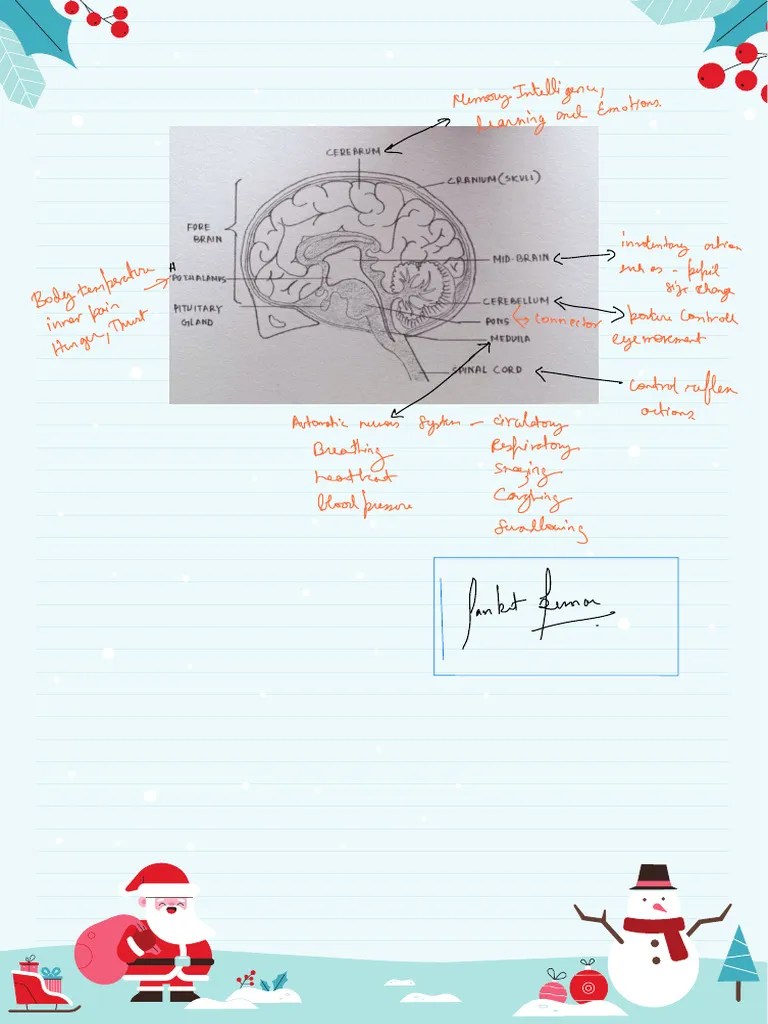 Memory. Intelligence,
Learning and Emotions.
CEREBRUM
CRANIUM (SKULL)
FORE
BRAIN
MID-BRAIN
involuntary action
such as - pupil
size change
Body temperature
inner pain
Hunger, Thrust
H
POTHALAMUS
PITUITARY
GLAND
CEREBELLUM
posture Controll
eye movement
PONS
connector
MEDULLA
SPINAL CORD
Control reflex
actions
Automatic nervous System - circulatory
Breathing
Respiratory
heartbeat
Sneezing
blood pressure
Coughing
Swallowing
Kumar